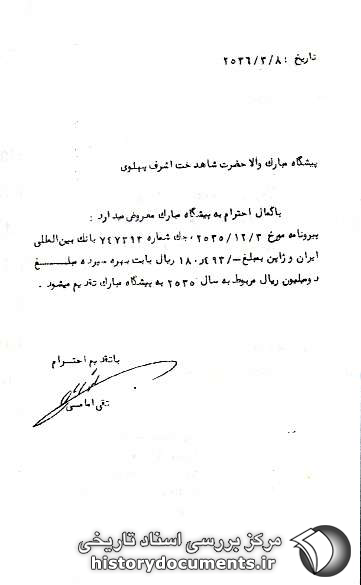 تاریخ : ۲۵۳۶/۳/۸
پیشگاه مبارك والاحضرت شاهدخت اشرف پهلوی
باکمال احترام به پیشگاه مبارك معروض میدارد :
پیرونامه مورخ ۲۵۳۵/۱۲/۳ ، چك شماره ۷۴۷۳۱۳ بانك بین‌المللی
ایران و ژاپن بمبلغ -/۱۸۰٫۴۹۳ ریال بابت بهره سپرده مبلغ
دومیلیون ریال مربوط به سال ۲۵۳۵ به پیشگاه مبارك تقدیم میشود .
باتقدیم احترام
تقی امامی
مرکز بررسی اسناد تاریخی
historydocuments.ir